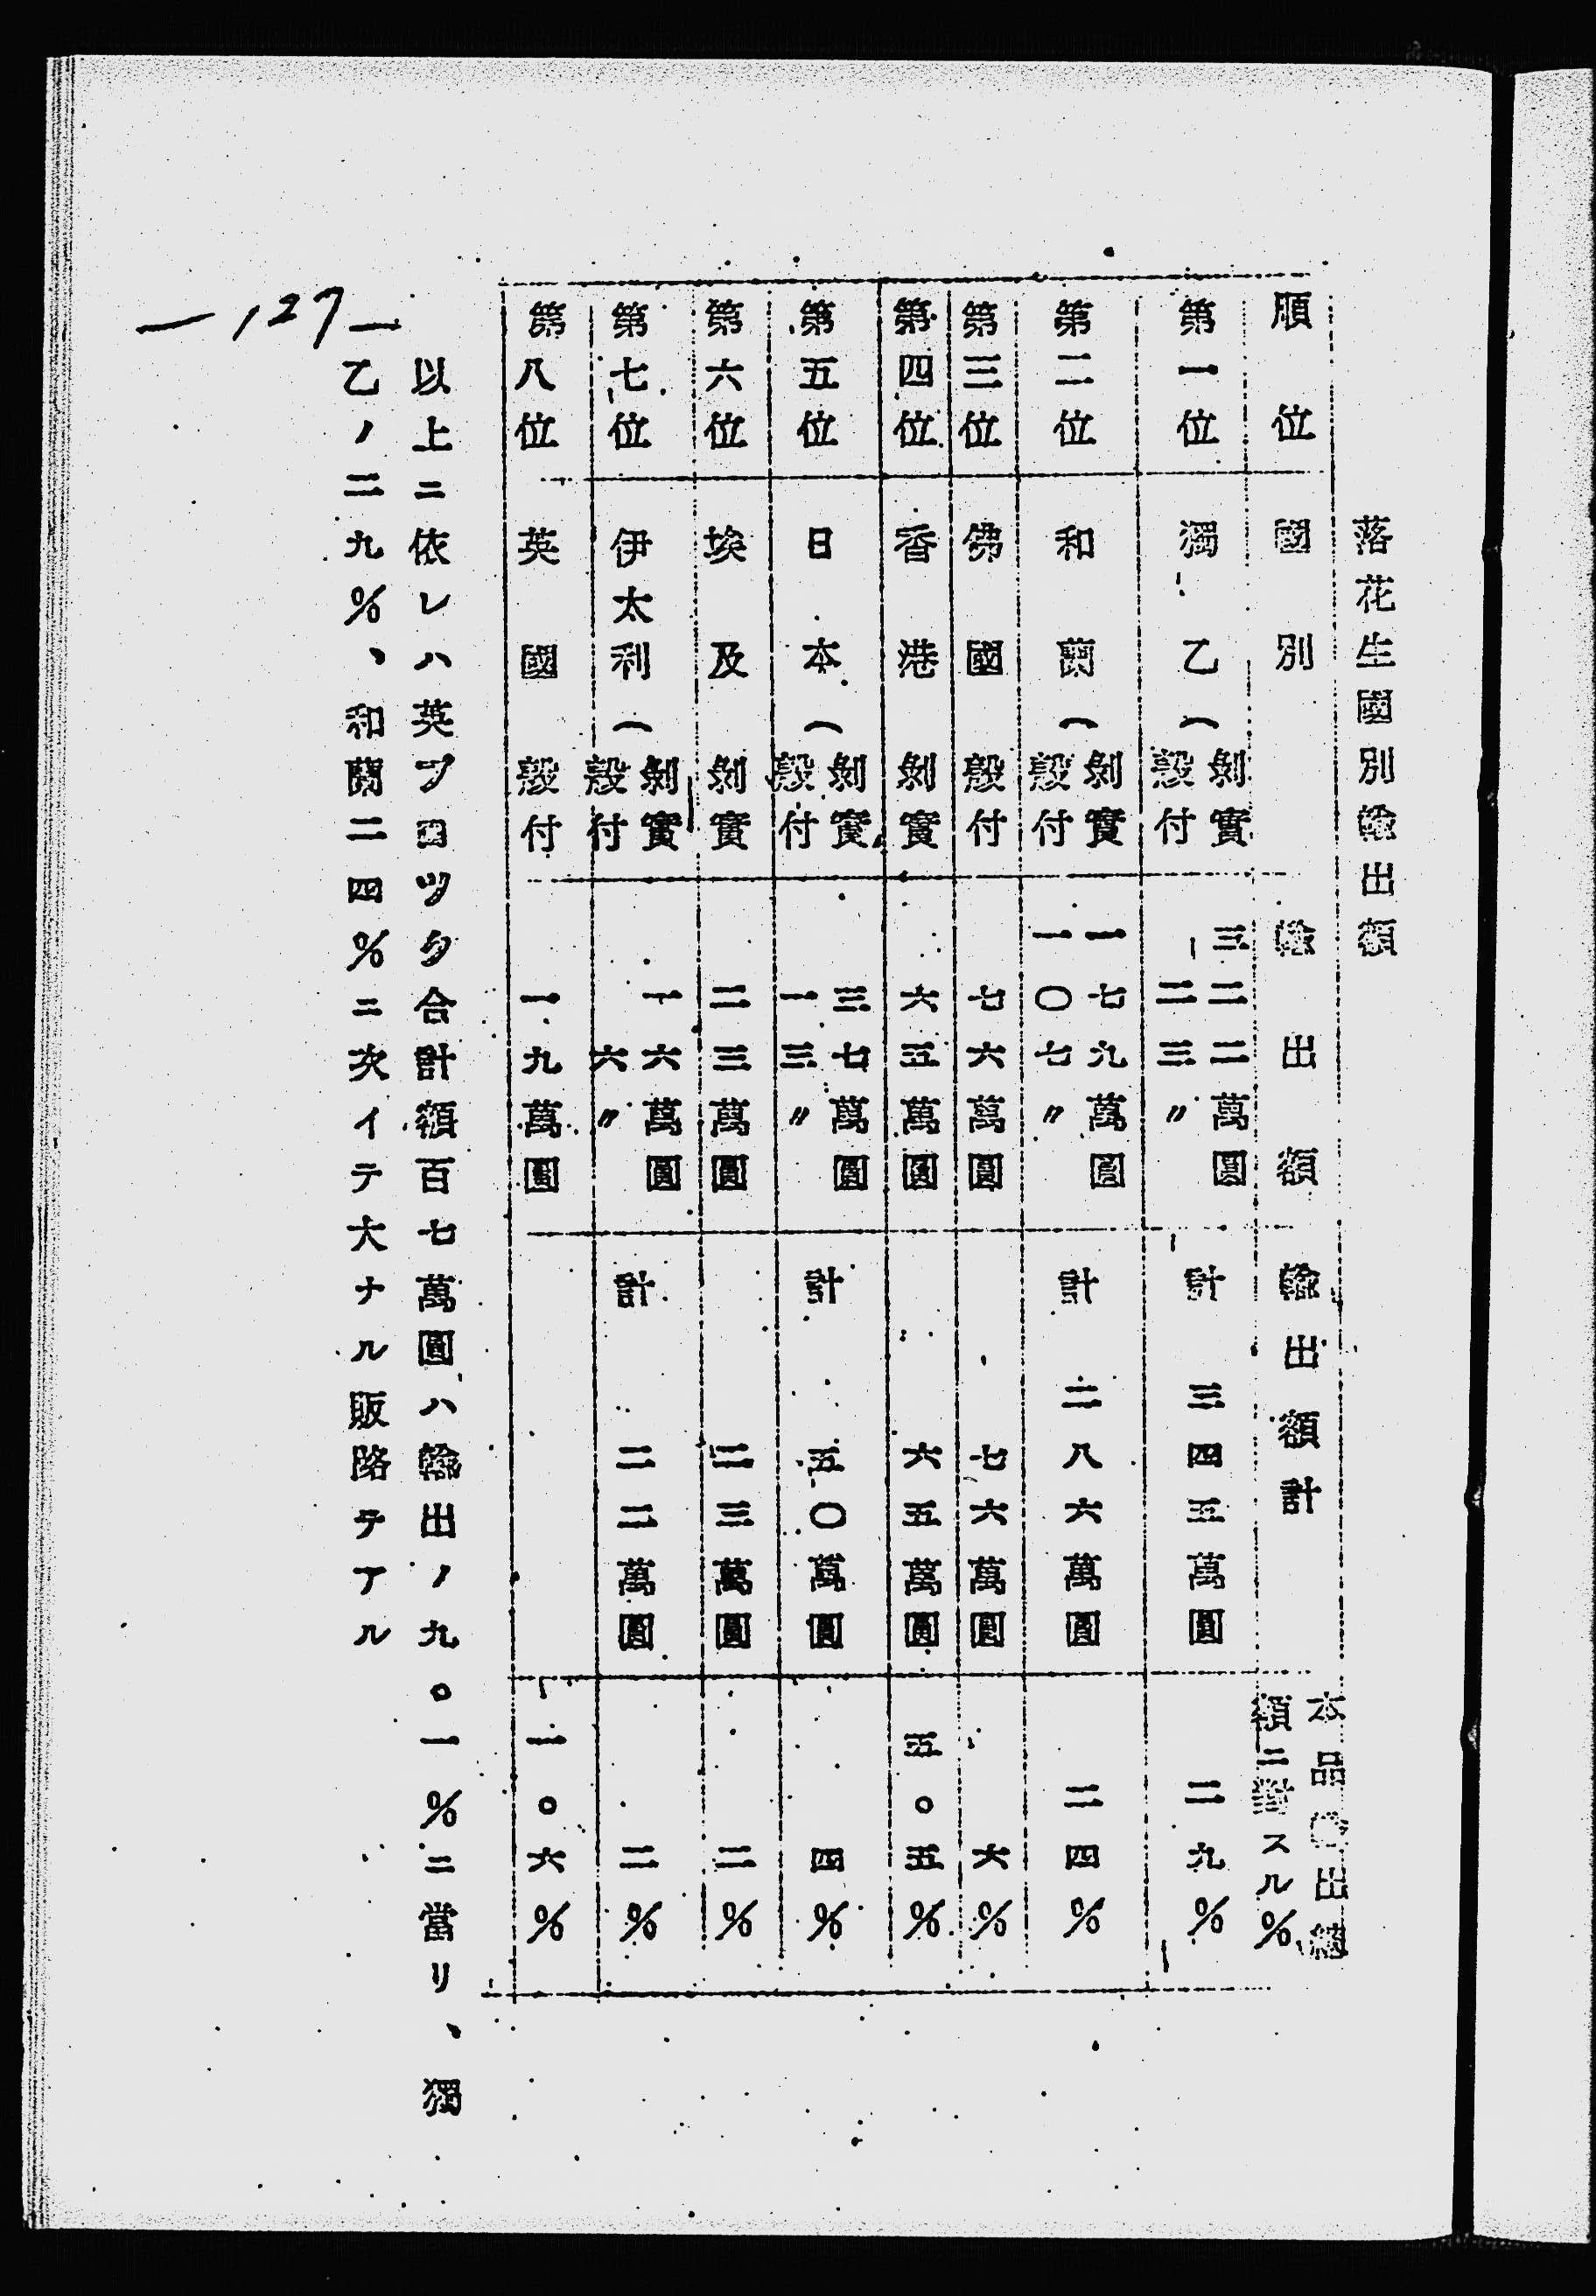 落花生國別輸出額
順位 國別 輸出額 輸出額計 本品輸出總額ニ對スル%
第一位 獨乙( 剝實 三二二萬圓 殼付 二三〃 計 三四五萬圓 二九%
第二位 和蘭( 剝實 一七九萬圓 殼付 一〇七〃 計 二八六萬圓 二四%
第三位 佛國 殼付 七六萬圓 七六萬圓 六%
第四位 香港 剝實 六五萬圓 六五萬圓 五。五%
第五位 日本( 剝實 三七萬圓 殼付 一三〃 計 五〇萬圓 四%
第六位 埃及 剝實 二三萬圓 二三萬圓 二%
第七位 伊太利( 剝實 一六萬圓 殼付 六〃 計 二二萬圓 二%
第八位 英國 殼付 一九萬圓 一。六%
以上ニ依レハ英ブロツク合計額百七萬圓ハ輸出ノ九。一%ニ當リ、獨
乙ノ二九%、和蘭二四%ニ次イテ大ナル販路テアル
—127—